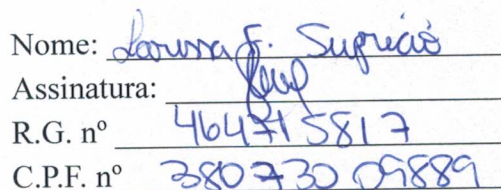 Nome: Larissa F. Suprició
Assinatura:
R.G. nº 464715817
C.P.F. nº 38073009889